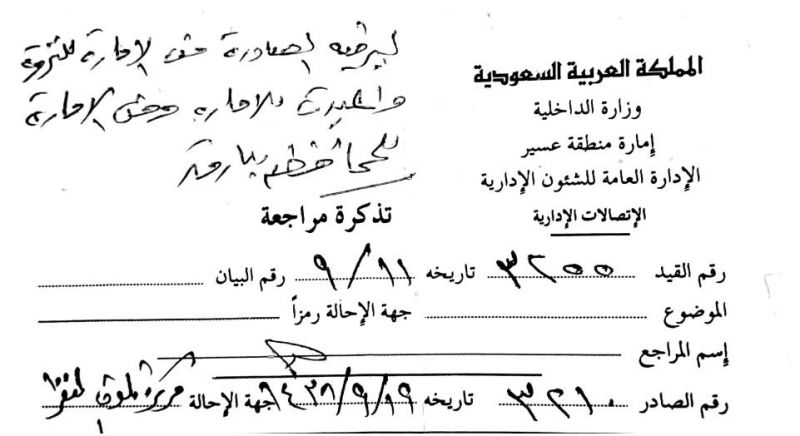 المملكة العربية السعودية
وزارة الداخلية
إمارة منطقة عسير
الإدارة العامة للشئون الإدارية
الإتصالات الإدارية
الصادرة من الإمارة
للإمارة ومن الإمارة
للمحافظة
تذكرة مراجعة
رقم القيد ٣٢٥٥ تاريخه ١١/٩ رقم البيان
الموضوع جهة الإحالة رمزاً
إسم المراجع
رقم الصادر ٣٢١٠ تاريخه ١٩/٩/١٤٣٨ جهة الإحالة